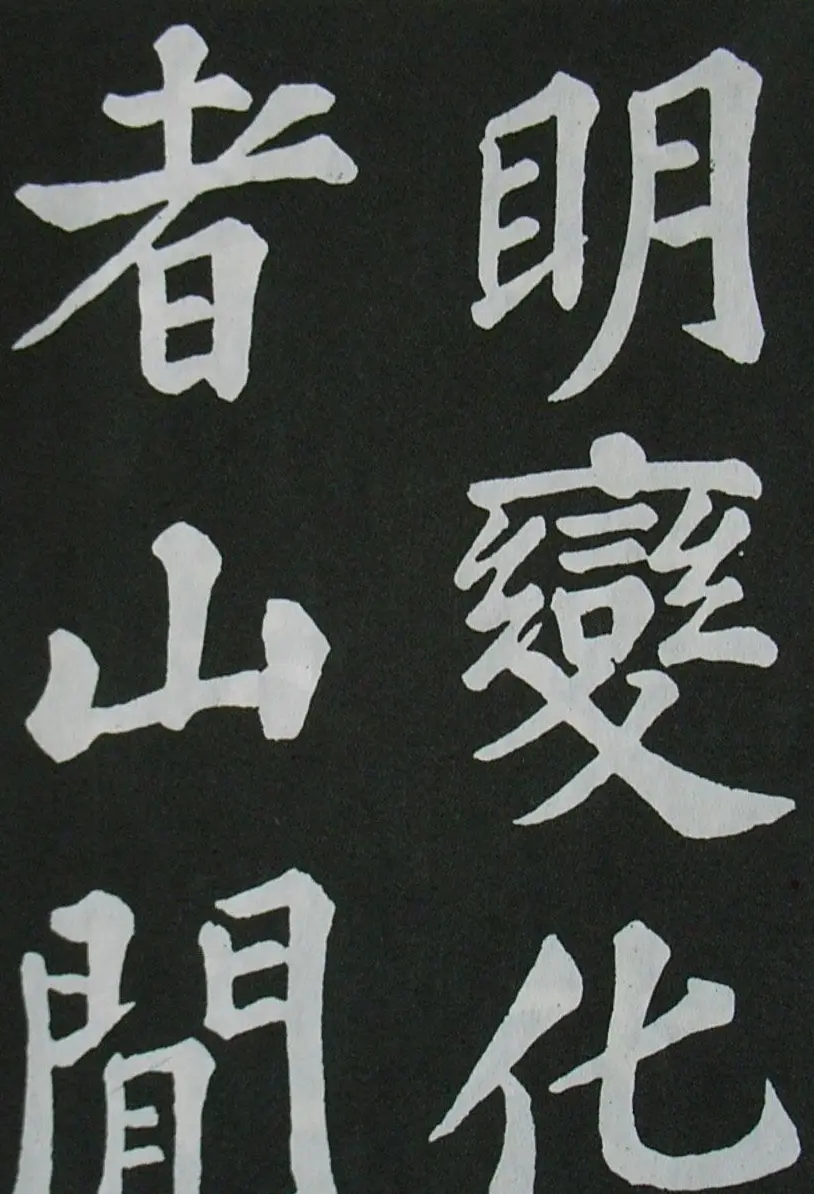 明變化
者山間